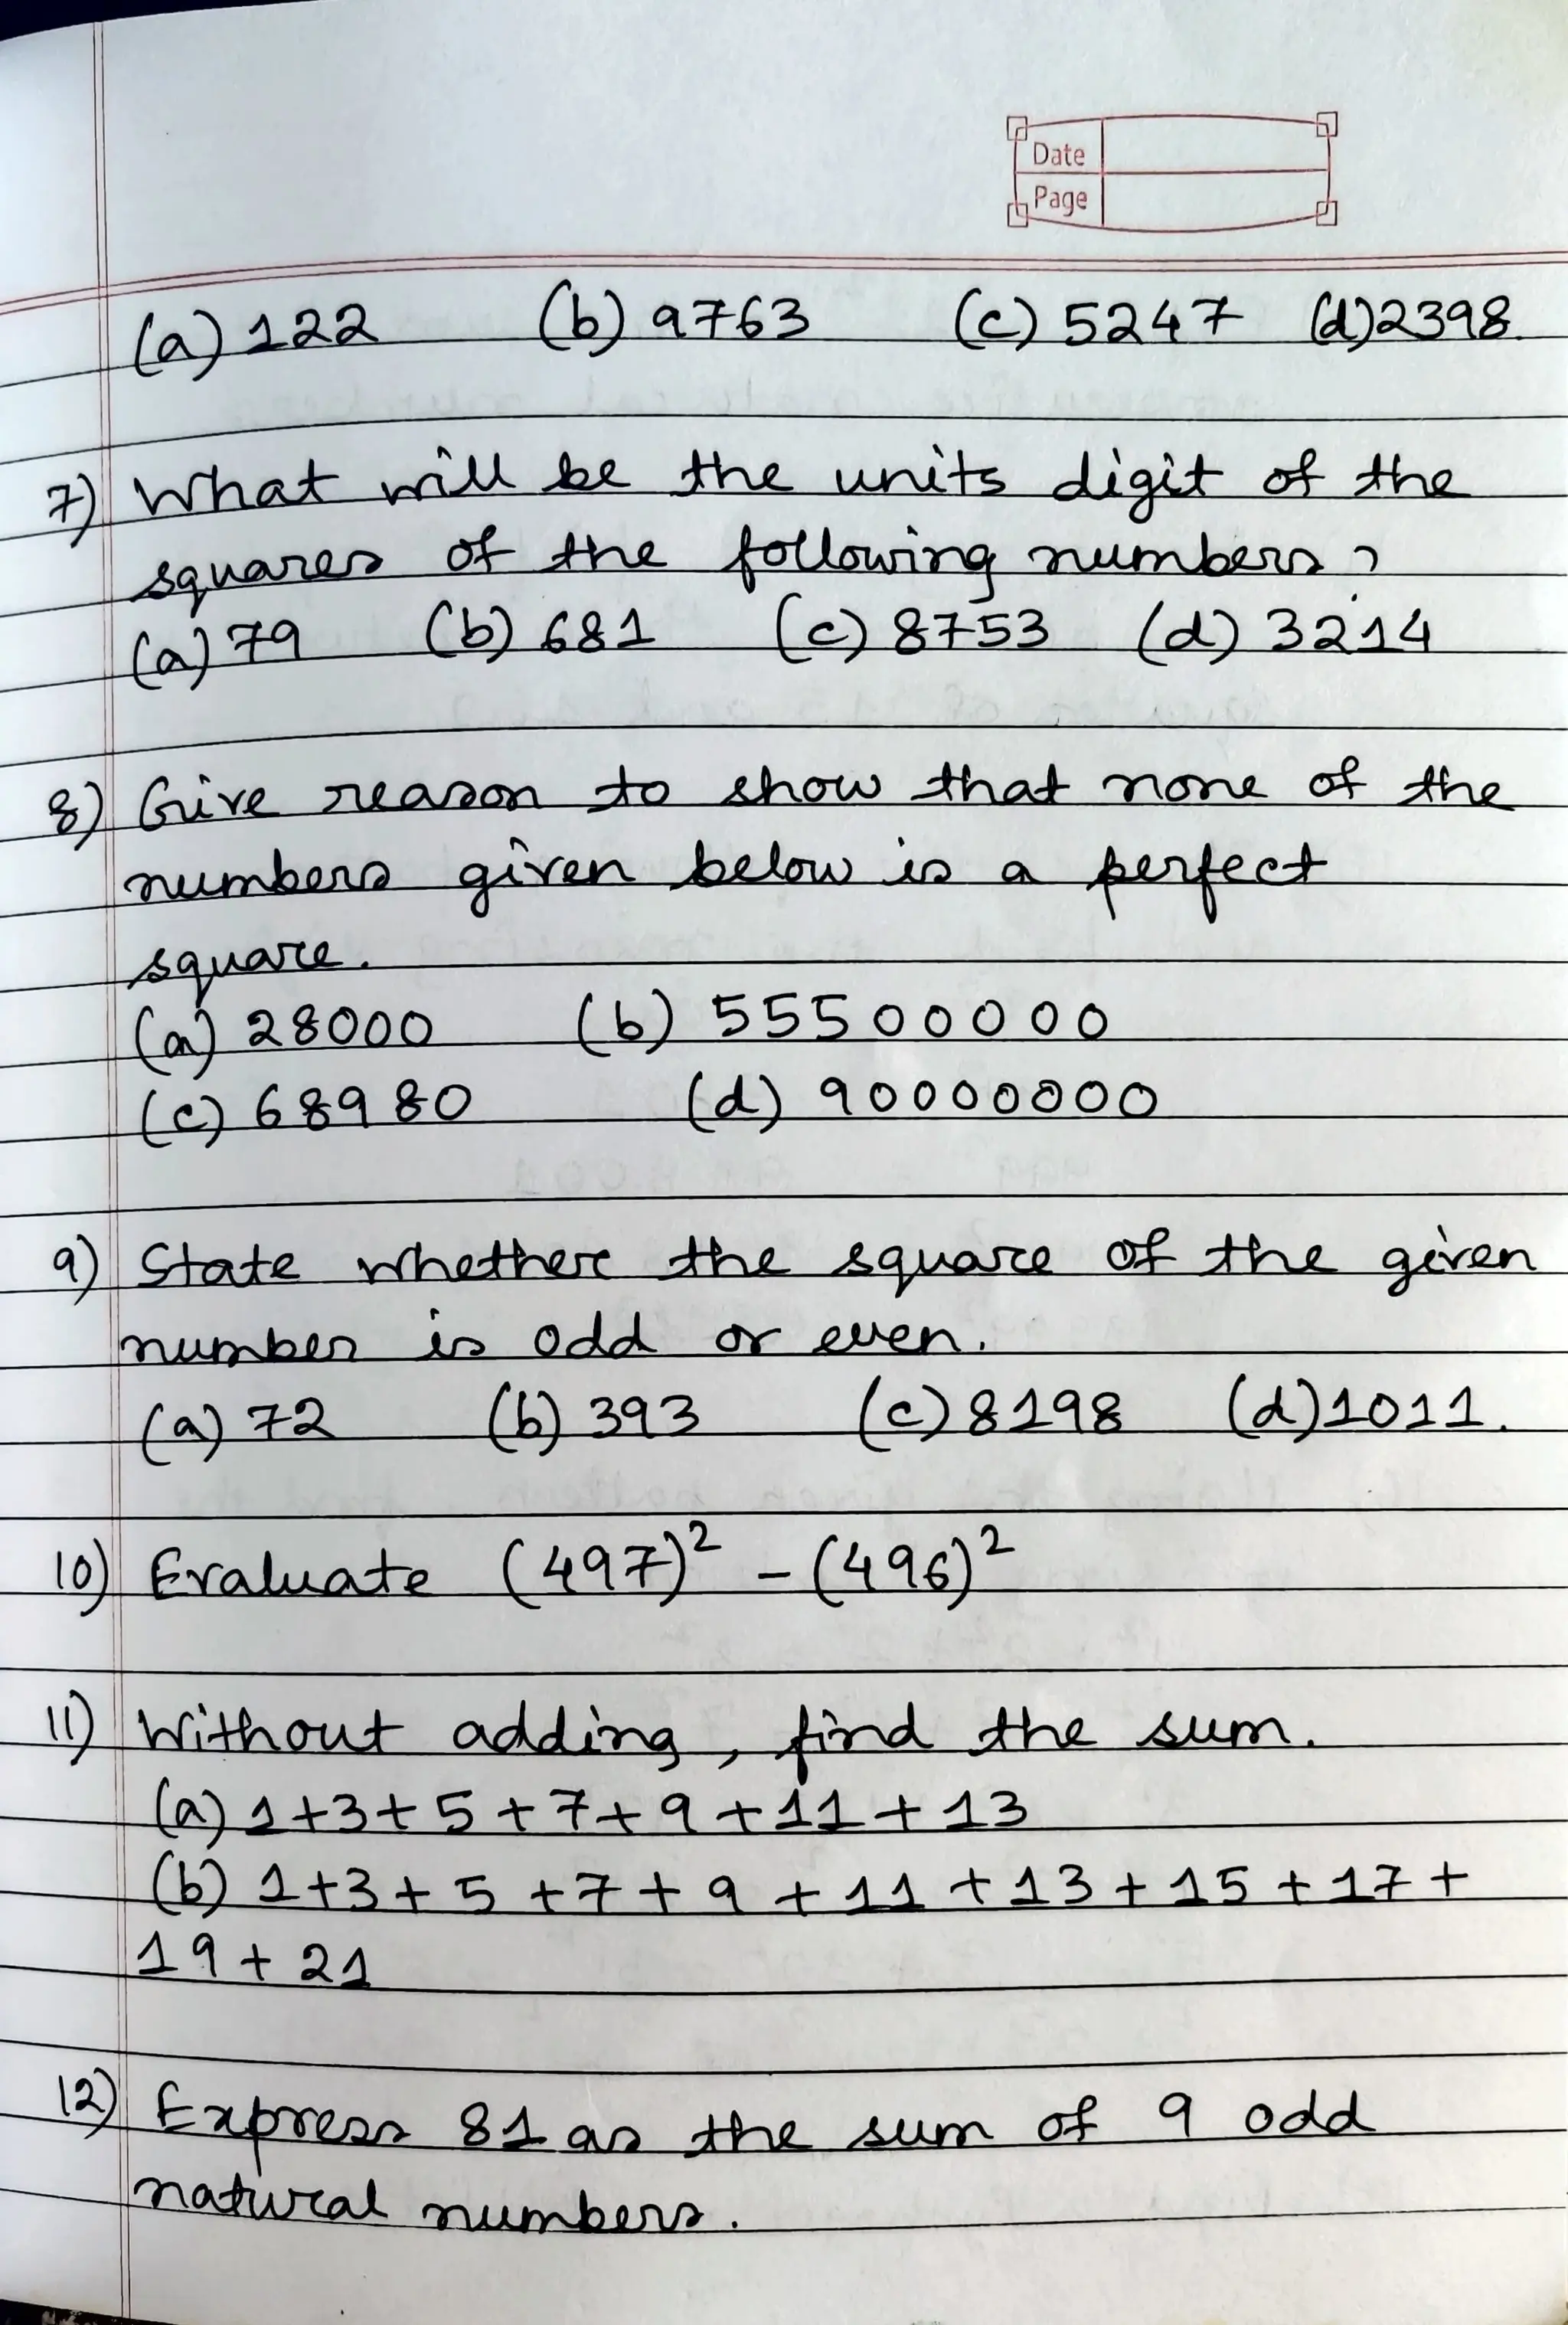 Date
Page
(a) 122 (b) 9763 (c) 5247 (d) 2398.
7) What will be the units digit of the
squares of the following numbers?
(a) 79 (b) 681 (c) 8753 (d) 3214
8) Give reason to show that none of the
numbers given below is a perfect
square.
(a) 28000 (b) 55500000
(c) 68980 (d) 90000000
9) State whether the square of the given
number is odd or even.
(a) 72 (b) 393 (c) 8198 (d) 1011.
10) Evaluate (497)² - (496)²
11) Without adding, find the sum.
(a) 1+3+5+7+9+11+13
(b) 1+3+5+7+9+11+13+15+17+
19+21
12) Express 81 as the sum of 9 odd
natural numbers.